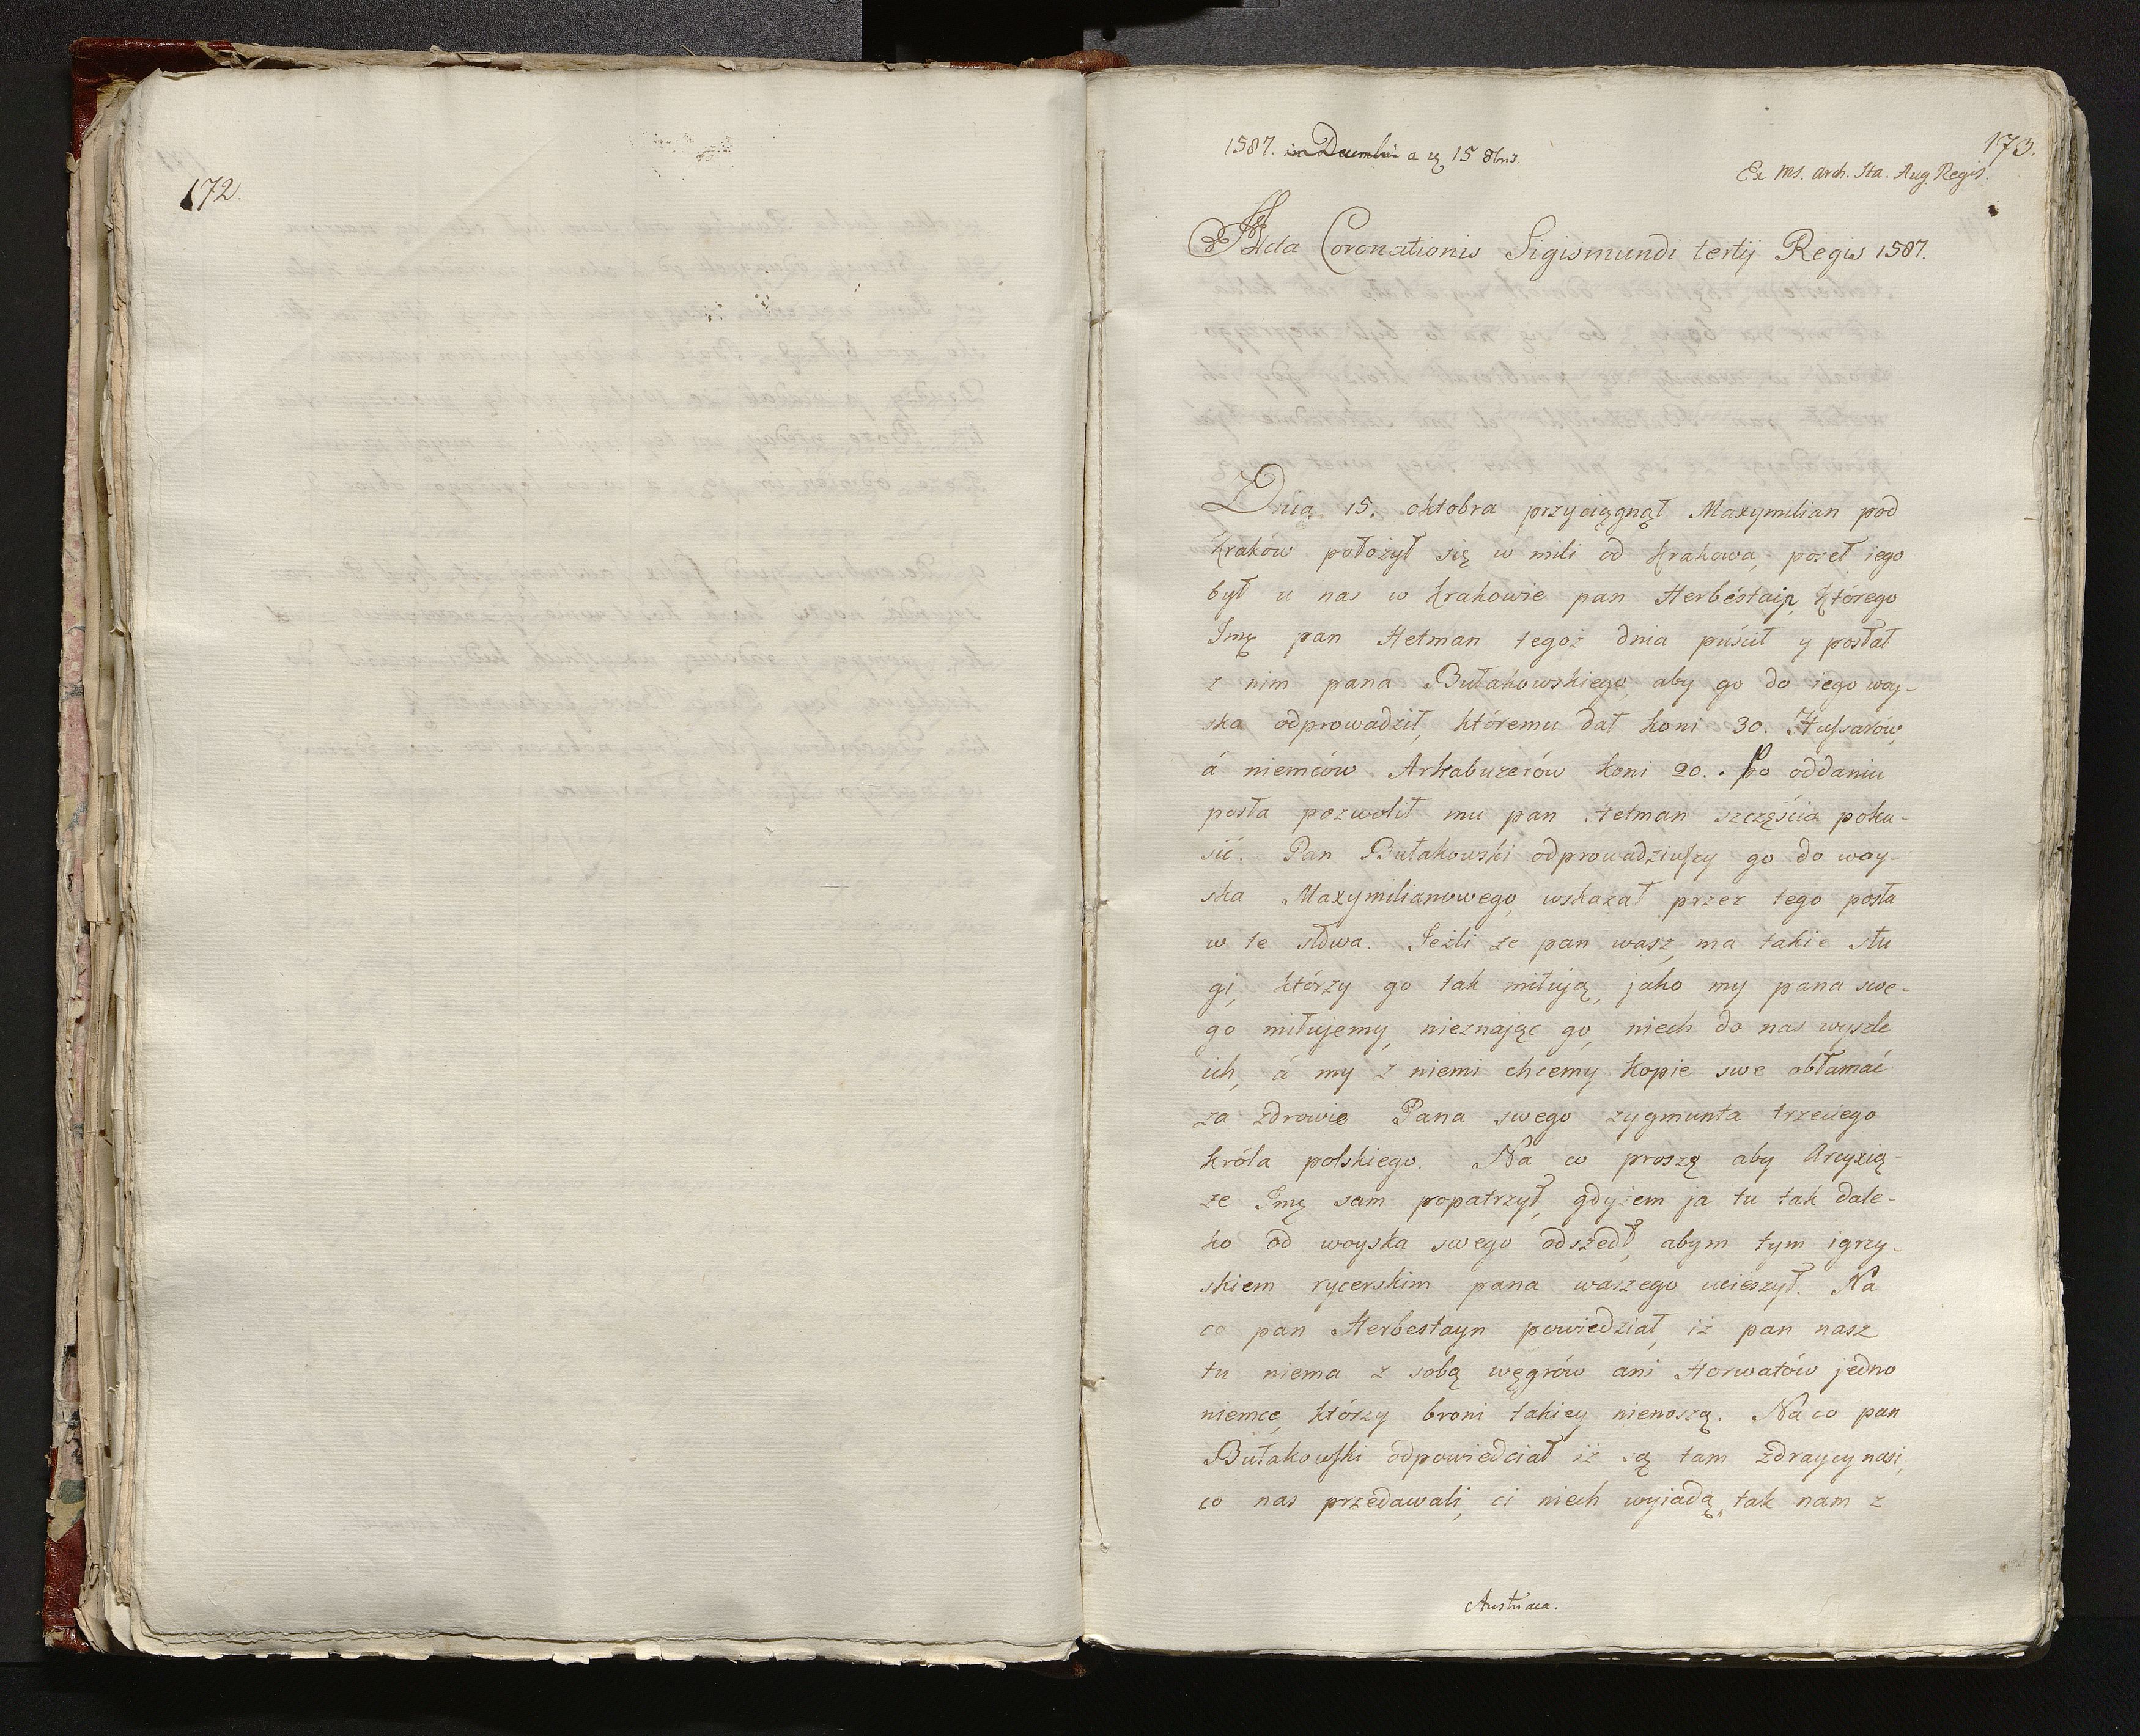 172.
173.
1587. in Decembri a 15 8bris.
Ex Ms. Arch. Sta. Aug. Regis.
Acta Coronationis Sigismundi tertij Regis 1587.
Dnia 15. oktobra przyciągnął Maxymilian pod
Kraków położył się w mili od Krakowa, poseł iego
był u nas w Krakowie pan Herbéstain, którego
Jmę pan Hetman tegoż dnia puścił y posłał
z nim pana Bułakowskiego, aby go do iego woy-
ska odprowadził, któremu dał koni 30. Hussarów,
á niemców Arkabuzerów koni 20. Po oddaniu
posła pozwolił mu pan Hetman szczęścia poku-
sić. Pan Bułakowski odprowadziwszy go do woy-
ska Maxymilianowego, wskazał przez tego posła
w te słowa. Jeżli że pan wasz, ma takie słu
gi, którzy go tak miłują, jako my pana swe-
go miłujemy, nieznając go, niech do nas wyszle
ich, á my z niemi chcemy kopie swe obłamać
za zdrowie Pana swego zygmunta trzeciego
króla polskiego. Na co proszę aby Arcyxią-
że Jmę sam popatrzył, gdyżem ja tu tak dale-
ko od woyska swego odszedł, abym tym igrzy-
skiem rycerskim pana waszego ucieszył. Na
co pan Herbestayn powiedział, iż pan nasz
tu niema z sobą węgrów ani Horwatów jedno
niemce, którzy broni takiey nienoszą. Na co pan
Bułakowski odpowiedciał iż są tam zdraycy nasi,
co nas przedawali, ci niech wyiadą, tak nam z
Austriaca.